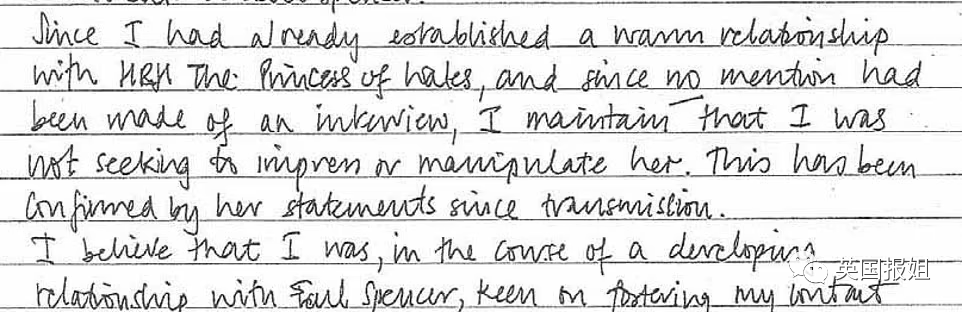 Since I had already established a warm relationship
with HRH The Princess of Wales, and since no mention had
been made of an interview, I maintain that I was
not seeking to impress or manipulate her. This has been
confirmed by her statements since transmission.
I believe that I was, in the course of a developing
relationship with Earl Spencer, keen on fostering my contact
英国报姐